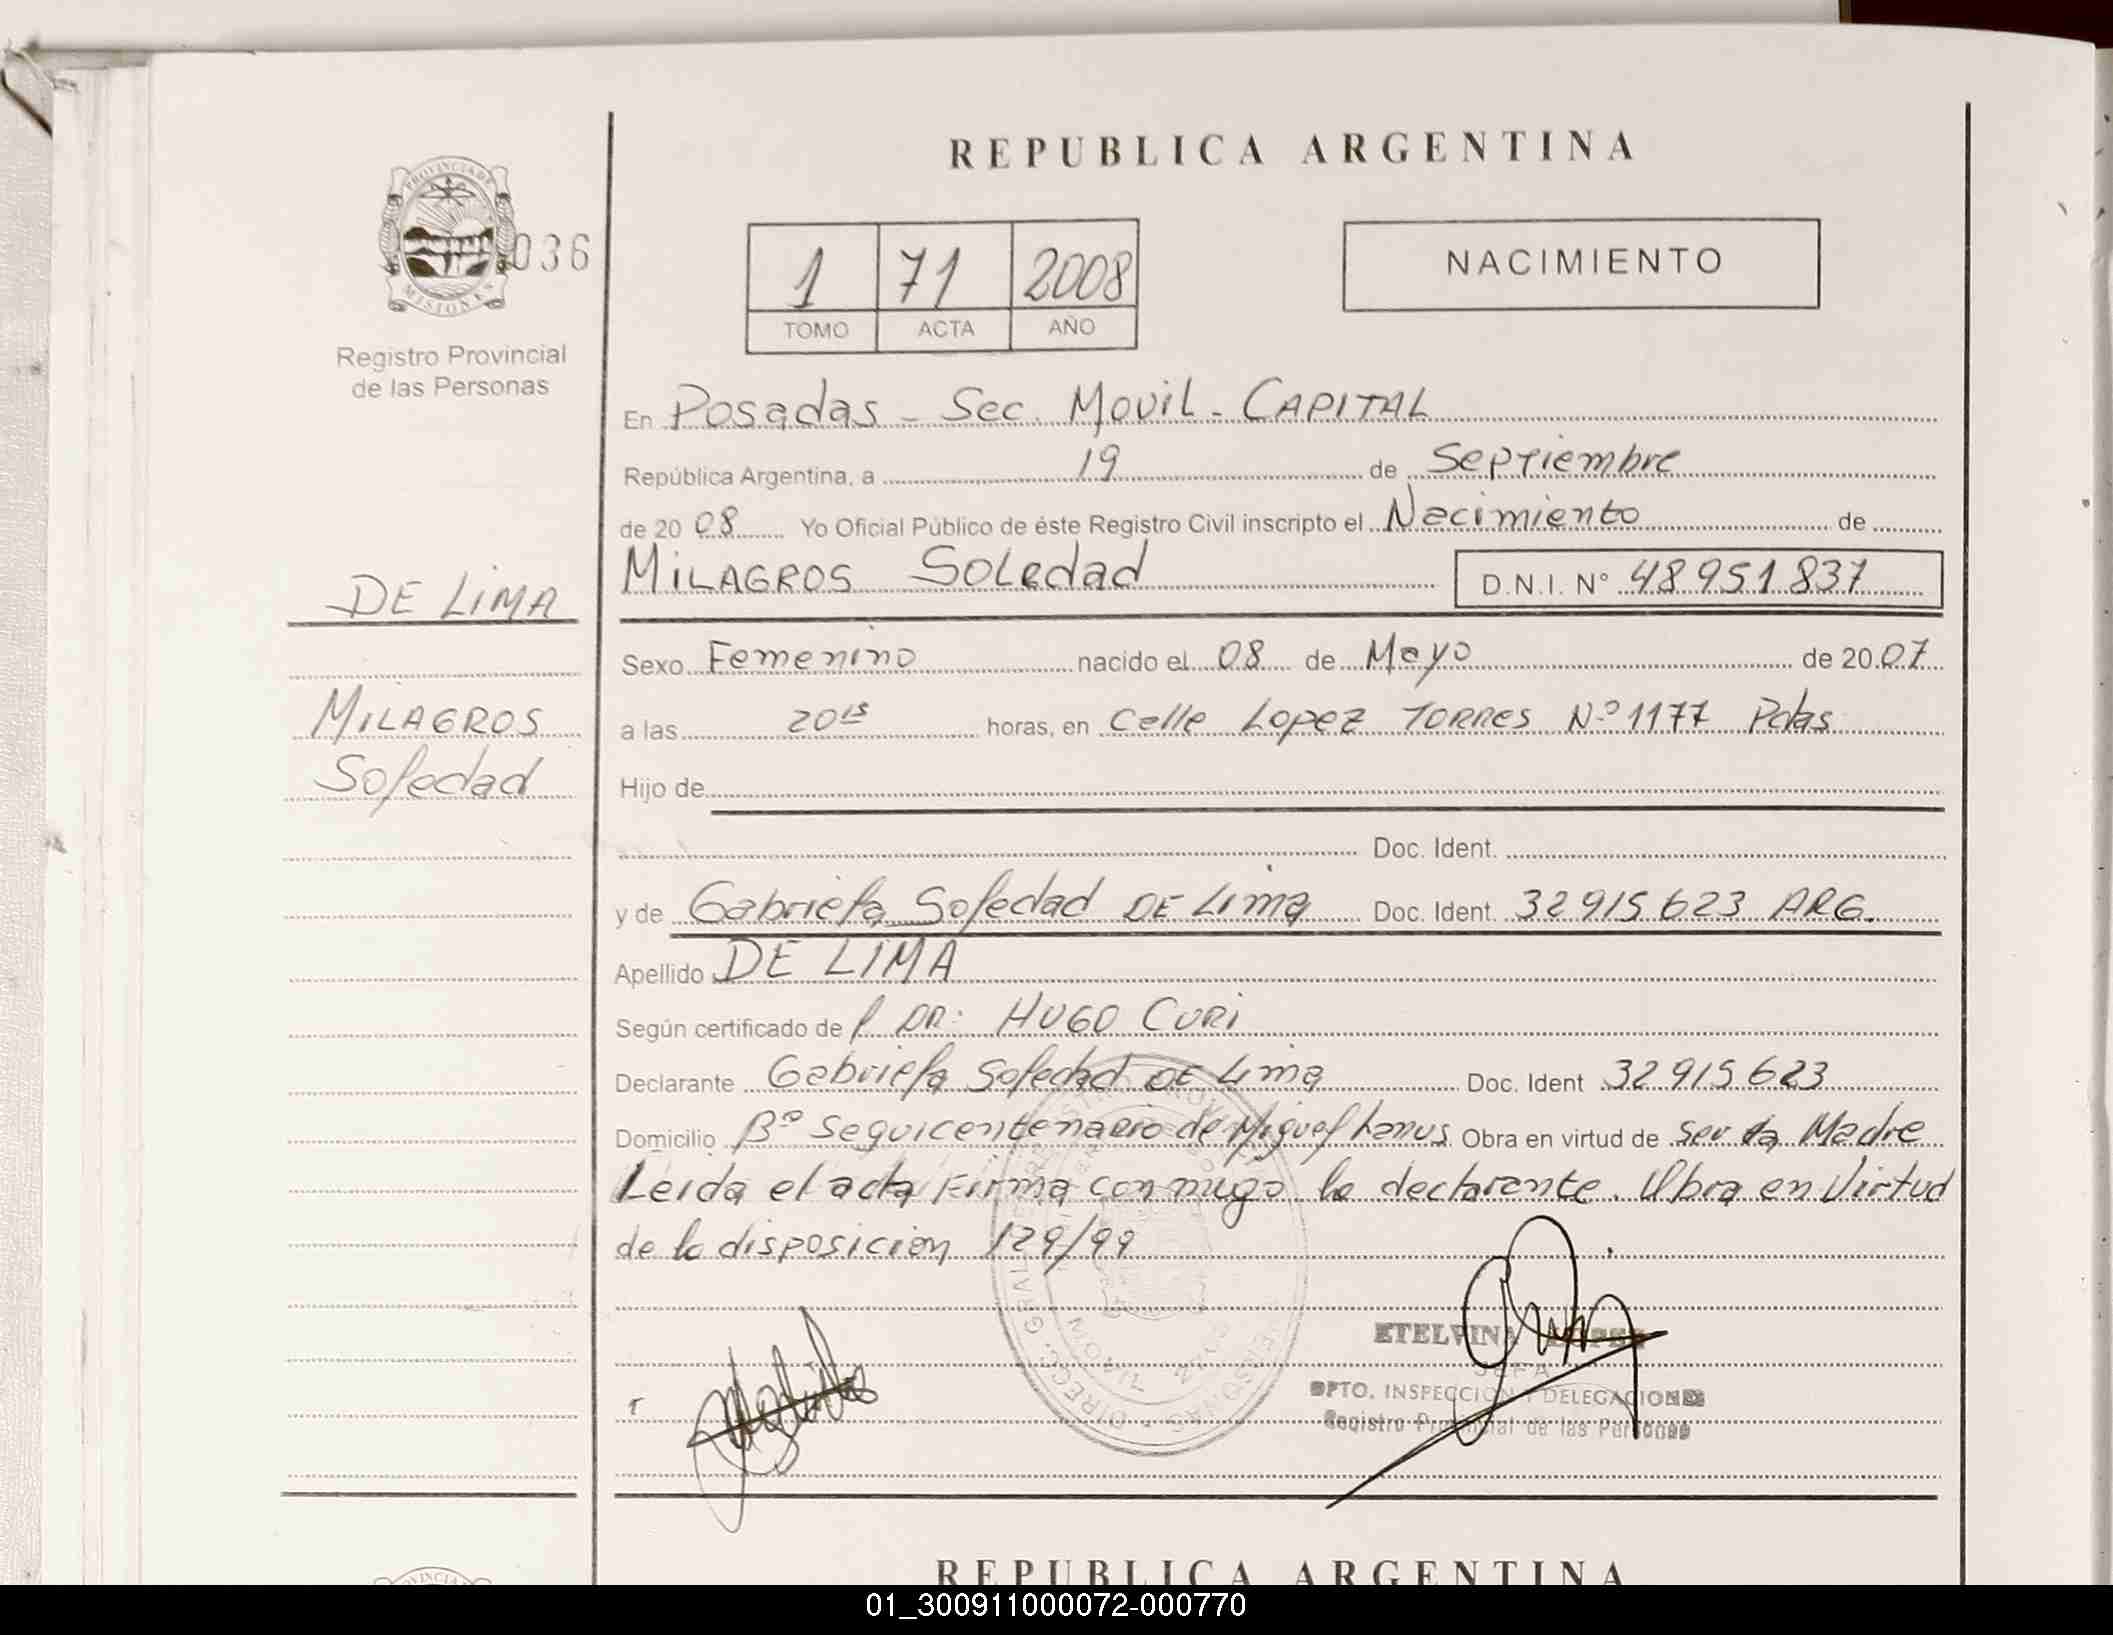 REPUBLICA ARGENTINA
PROVINCIA DE
MISIONES
036
1 71 2008
TOMO ACTA AÑO
NACIMIENTO
Registro Provincial
de las Personas
En Posadas - Sec. Movil - CAPITAL
República Argentina, a 19 de Septiembre
de 20 08 Yo Oficial Público de éste Registro Civil inscripto el Nacimiento de
MILAGROS Soledad D.N.I. N° 48951837
DE LIMA
Sexo Femenino nacido el 08 de Mayo de 2007
MILAGROS
Soledad
a las 20 15 horas, en Calle Lopez TORRES Nº 1177 Pdas
Hijo de
Doc. Ident.
y de Gabriela Soledad DE Lima Doc. Ident. 32915623 ARG.
Apellido DE LIMA
Según certificado de P. DR: HUGO CURI
Declarante Gabriela Soledad DE Lima Doc. Ident 32915623
Domicilio Bº Sequicentenario de Miguel Lanus Obra en virtud de ser la Madre
Leida el acta Firma con migo la declarante. Obra en Virtud
de la disposicion 129/99
ETELVINA LOPEZ
JEFA
DPTO. INSPECCION Y DELEGACIONES
Registro Provincial de las Personas
REPUBLICA ARGENTINA
01_300911000072-000770